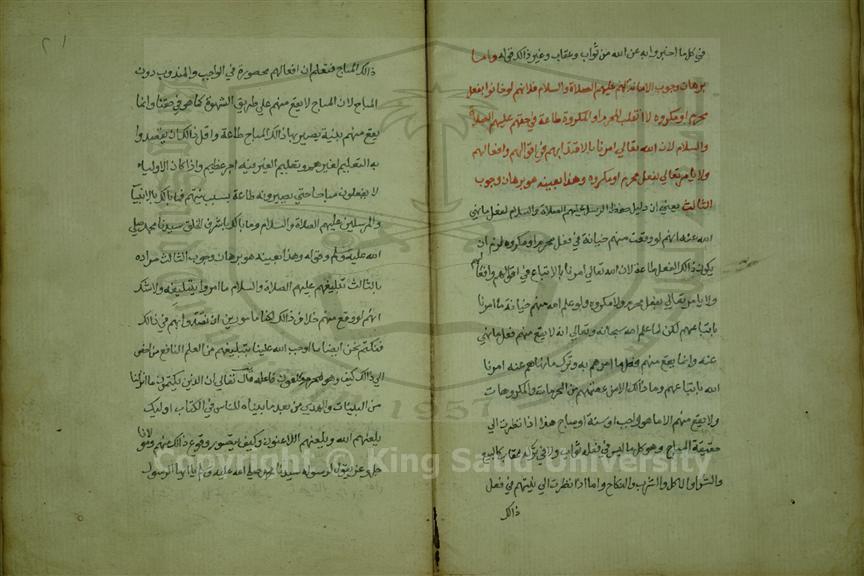 في كل ما اخبروا به عن الله من ثواب وعقاب وغير ذالك قوله واما
برهان وجوب الامانة لهم عليهم الصلاة والسلام فلانهم لو خانوا بفعل
محرم او مكروه لانقلب المحرم او المكروه طاعة في حقهم عليهم الصلاة
والسلام لان الله تعالي امرنا بالاقتداء بهم في اقوالهم وافعالهم
ولا يامر تعالي بفعل محرم او مكروه وهذا بعينه هو برهان وجوب
الثالث يعني ان دليل حفظ الرسل عليهم الصلاة والسلام لفعل ما نهي
الله عنه انهم لو وقعت منهم خيانة في فعل محرم او مكروه لزم ان
يكون ذالك الفعل طاعة لان الله تعالي امرنا بالاتباع في اقوالهم وافعالهم
ولا يامر تعالي بفعل محرم ولا مكروه ولو علم الله منهم خيانة ما امرنا
باتباعهم لكن لما علم الله سبحانه وتعالي انه لا يقع منهم فعل ما نهي
عنه وانما يقع منهم فعل ما امرهم به وترك ما نهاهم عنه امرنا
الله باتباعهم وما ذالك الا من عصمتهم من المحرمات والمكروهات
ولا يقع منهم الا ما هو واجب او سنة او مباح هذا اذا نظرت الي
حقيقة المباح وهو كل ما ليس في فعله ثواب ولا في تركه عقاب كالبيع
والشراء والاكل والشرب والنكاح واما اذا نظرت الي نيتهم في فعل
ذالك
ذالك المباح فتعلم ان افعالهم محصورة في الواجب والمندوب دون
المباح لان المباح لا يقع منهم علي طريق الشهوة كما هو في حقنا وانما
يقع منهم بنية يصير بها ذالك المباح طاعة واقل ذالك ان يقصدوا
به التعليم لغيرهم وتعليم الغير فيه اجر عظيم واذا كان الاولياء
لا يفعلون مباحا حتي يصيرونه طاعة بسبب نيتهم فما بالك بالانبيا
والمرسلين عليهم الصلاة والسلام وما بالك باشرف الخلق سيدنا محمد صلي
الله عليه وسلم وقوله وهذا بعينه هو برهان وجوب الثالث مراده
بالثالث تبليغهم عليهم الصلاة والسلام ما امروا بتبليغه ولا شك
انهم لو وقع منهم خلاف ذالك لكنا مامورين ان نقتدوا بهم في ذالك
فنكتم نحن ايضا ما اوجب الله علينا تبليغه من العلم النافع لمن اضطر
الي ذالك كيف وهو محرم وملعون فاعله قال تعالي ان الذين يكتمون ما انزلنا
من البينات والهدي من بعد ما بيناه للناس في الكتاب اوليك
يلعنهم الله ويلعنهم اللاعنون وكيف يتصور وقوع ذالك منهم ومولانا
جل وعز يقول لرسوله سيدنا محمد صلي الله عليه وسلم يا ايها الرسول
Copyright © King Saud University
1957